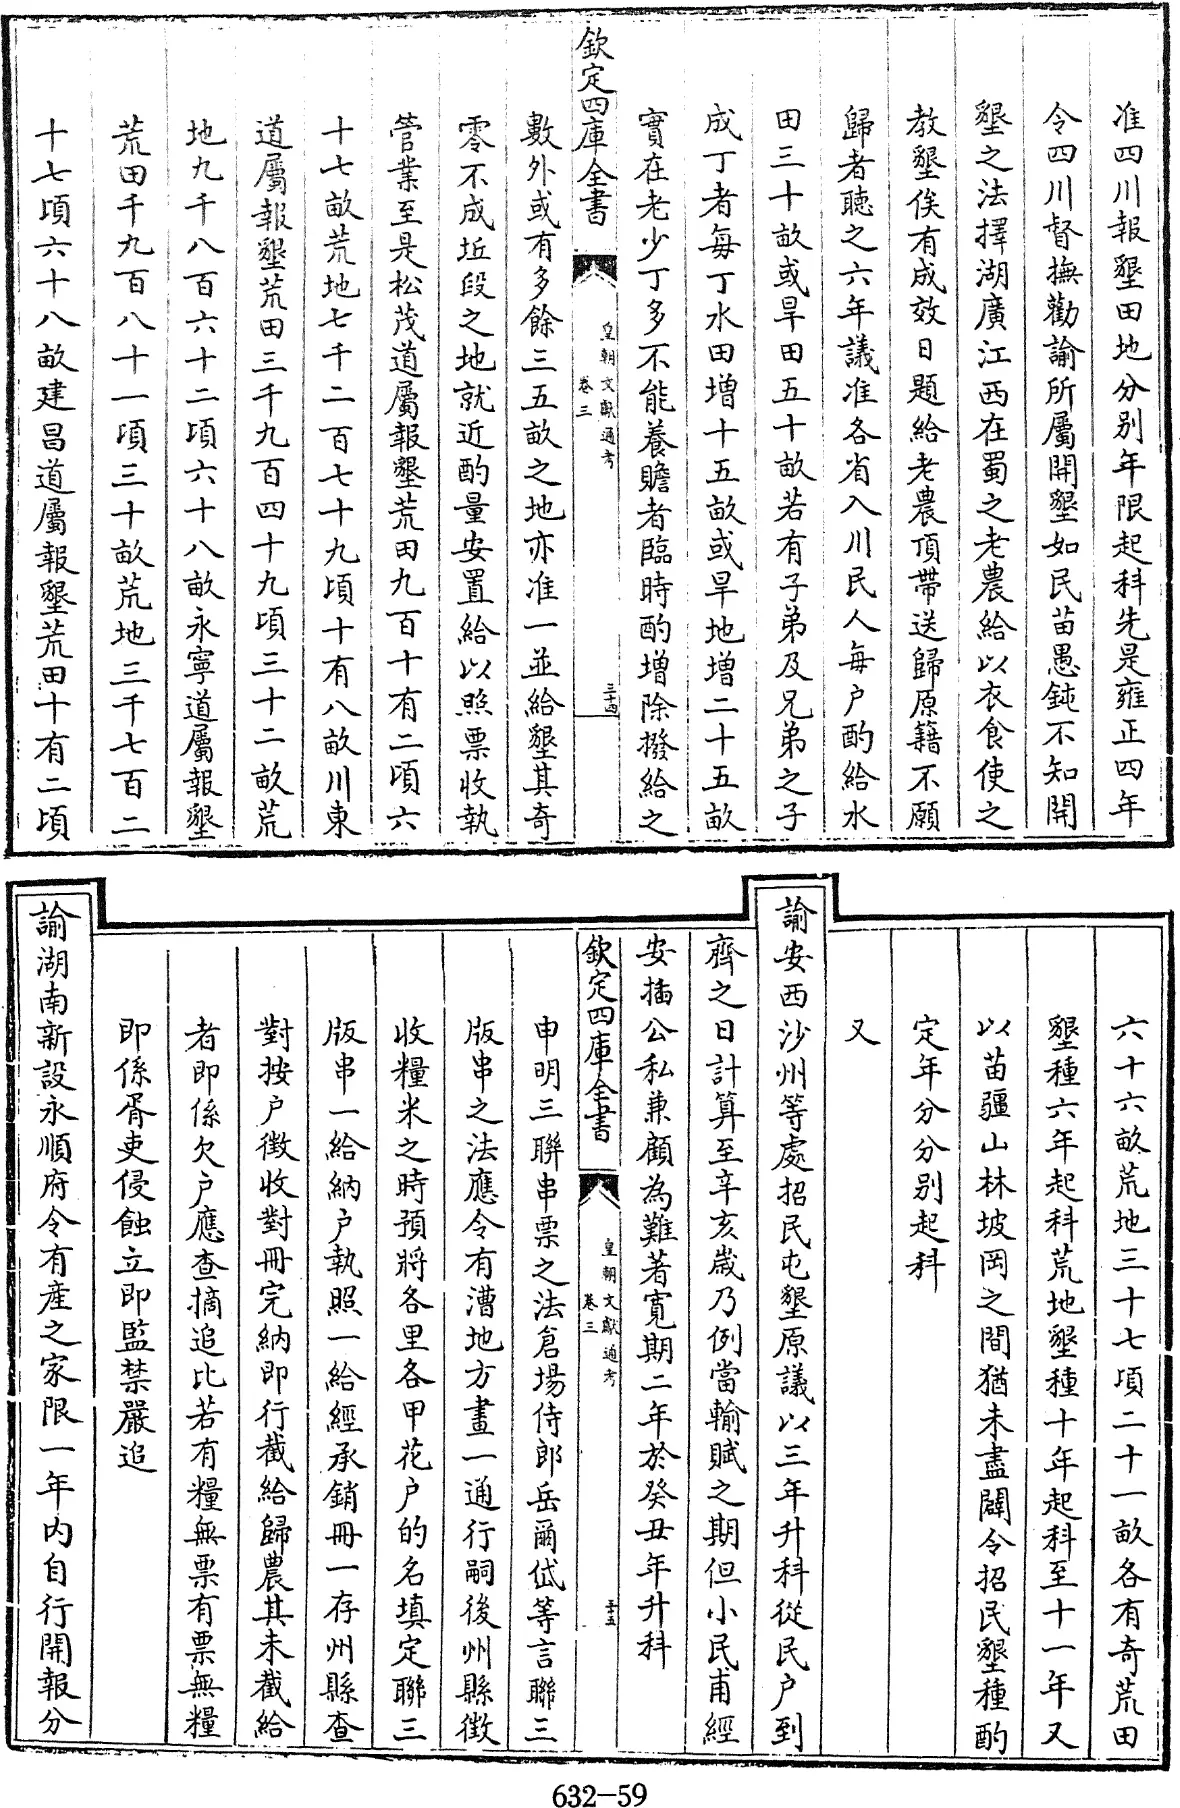 准四川報墾田地分别年限起科先是雍正四年
令四川督撫勸諭所屬開墾如民苗愚鈍不知開
墾之法擇湖廣江西在蜀之老農給以衣食使之
教墾俟有成效日題給老農頂帶送歸原籍不願
歸者聽之六年議准各省入川民人每户酌給水
田三十畝或旱田五十畝若有子弟及兄弟之子
成丁者每丁水田增十五畝或旱地增二十五畝
實在老少丁多不能養贍者臨時酌增除撥給之
欽定四庫全書
皇朝文獻通考
卷三
三十四
數外或有多餘三五畝之地亦准一並給墾其奇
零不成坵段之地就近酌量安置給以照票收執
管業至是松茂道屬報墾荒田九百十有二頃六
十七畝荒地七千二百七十九頃十有八畝川東
道屬報墾荒田三千九百四十九頃三十二畝荒
地九千八百六十二頃六十八畝永寧道屬報墾
荒田千九百八十一頃三十畝荒地三千七百二
十七頃六十八畝建昌道屬報墾荒田十有二頃
六十六畝荒地三十七項二十一畝各有奇荒田
墾種六年起科荒地墾種十年起科至十一年又
以苗疆山林坡岡之間猶未盡闢令招民墾種酌
定年分分别起科
又
諭安西沙州等處招民屯墾原議以三年升科從民户到
齊之日計算至辛亥歲乃例當輸賦之期但小民甫經
安插公私兼顧為難著寬期二年於癸丑年升科
欽定四庫全書
皇朝文獻通考
卷三
三十五
申明三聯串票之法倉場侍郎岳爾岱等言聯三
版串之法應令有漕地方畫一通行嗣後州縣徵
收糧米之時預將各里各甲花户的名填定聯三
版串一給納户執照一給經承銷冊一存州縣查
對按户徴收對冊完納即行截給歸農其未截給
者即係欠户應查摘追比若有糧無票有票無糧
即係胥吏侵蝕立即監禁嚴追
諭湖南新設永順府令有産之家限一年內自行開報分
632-59